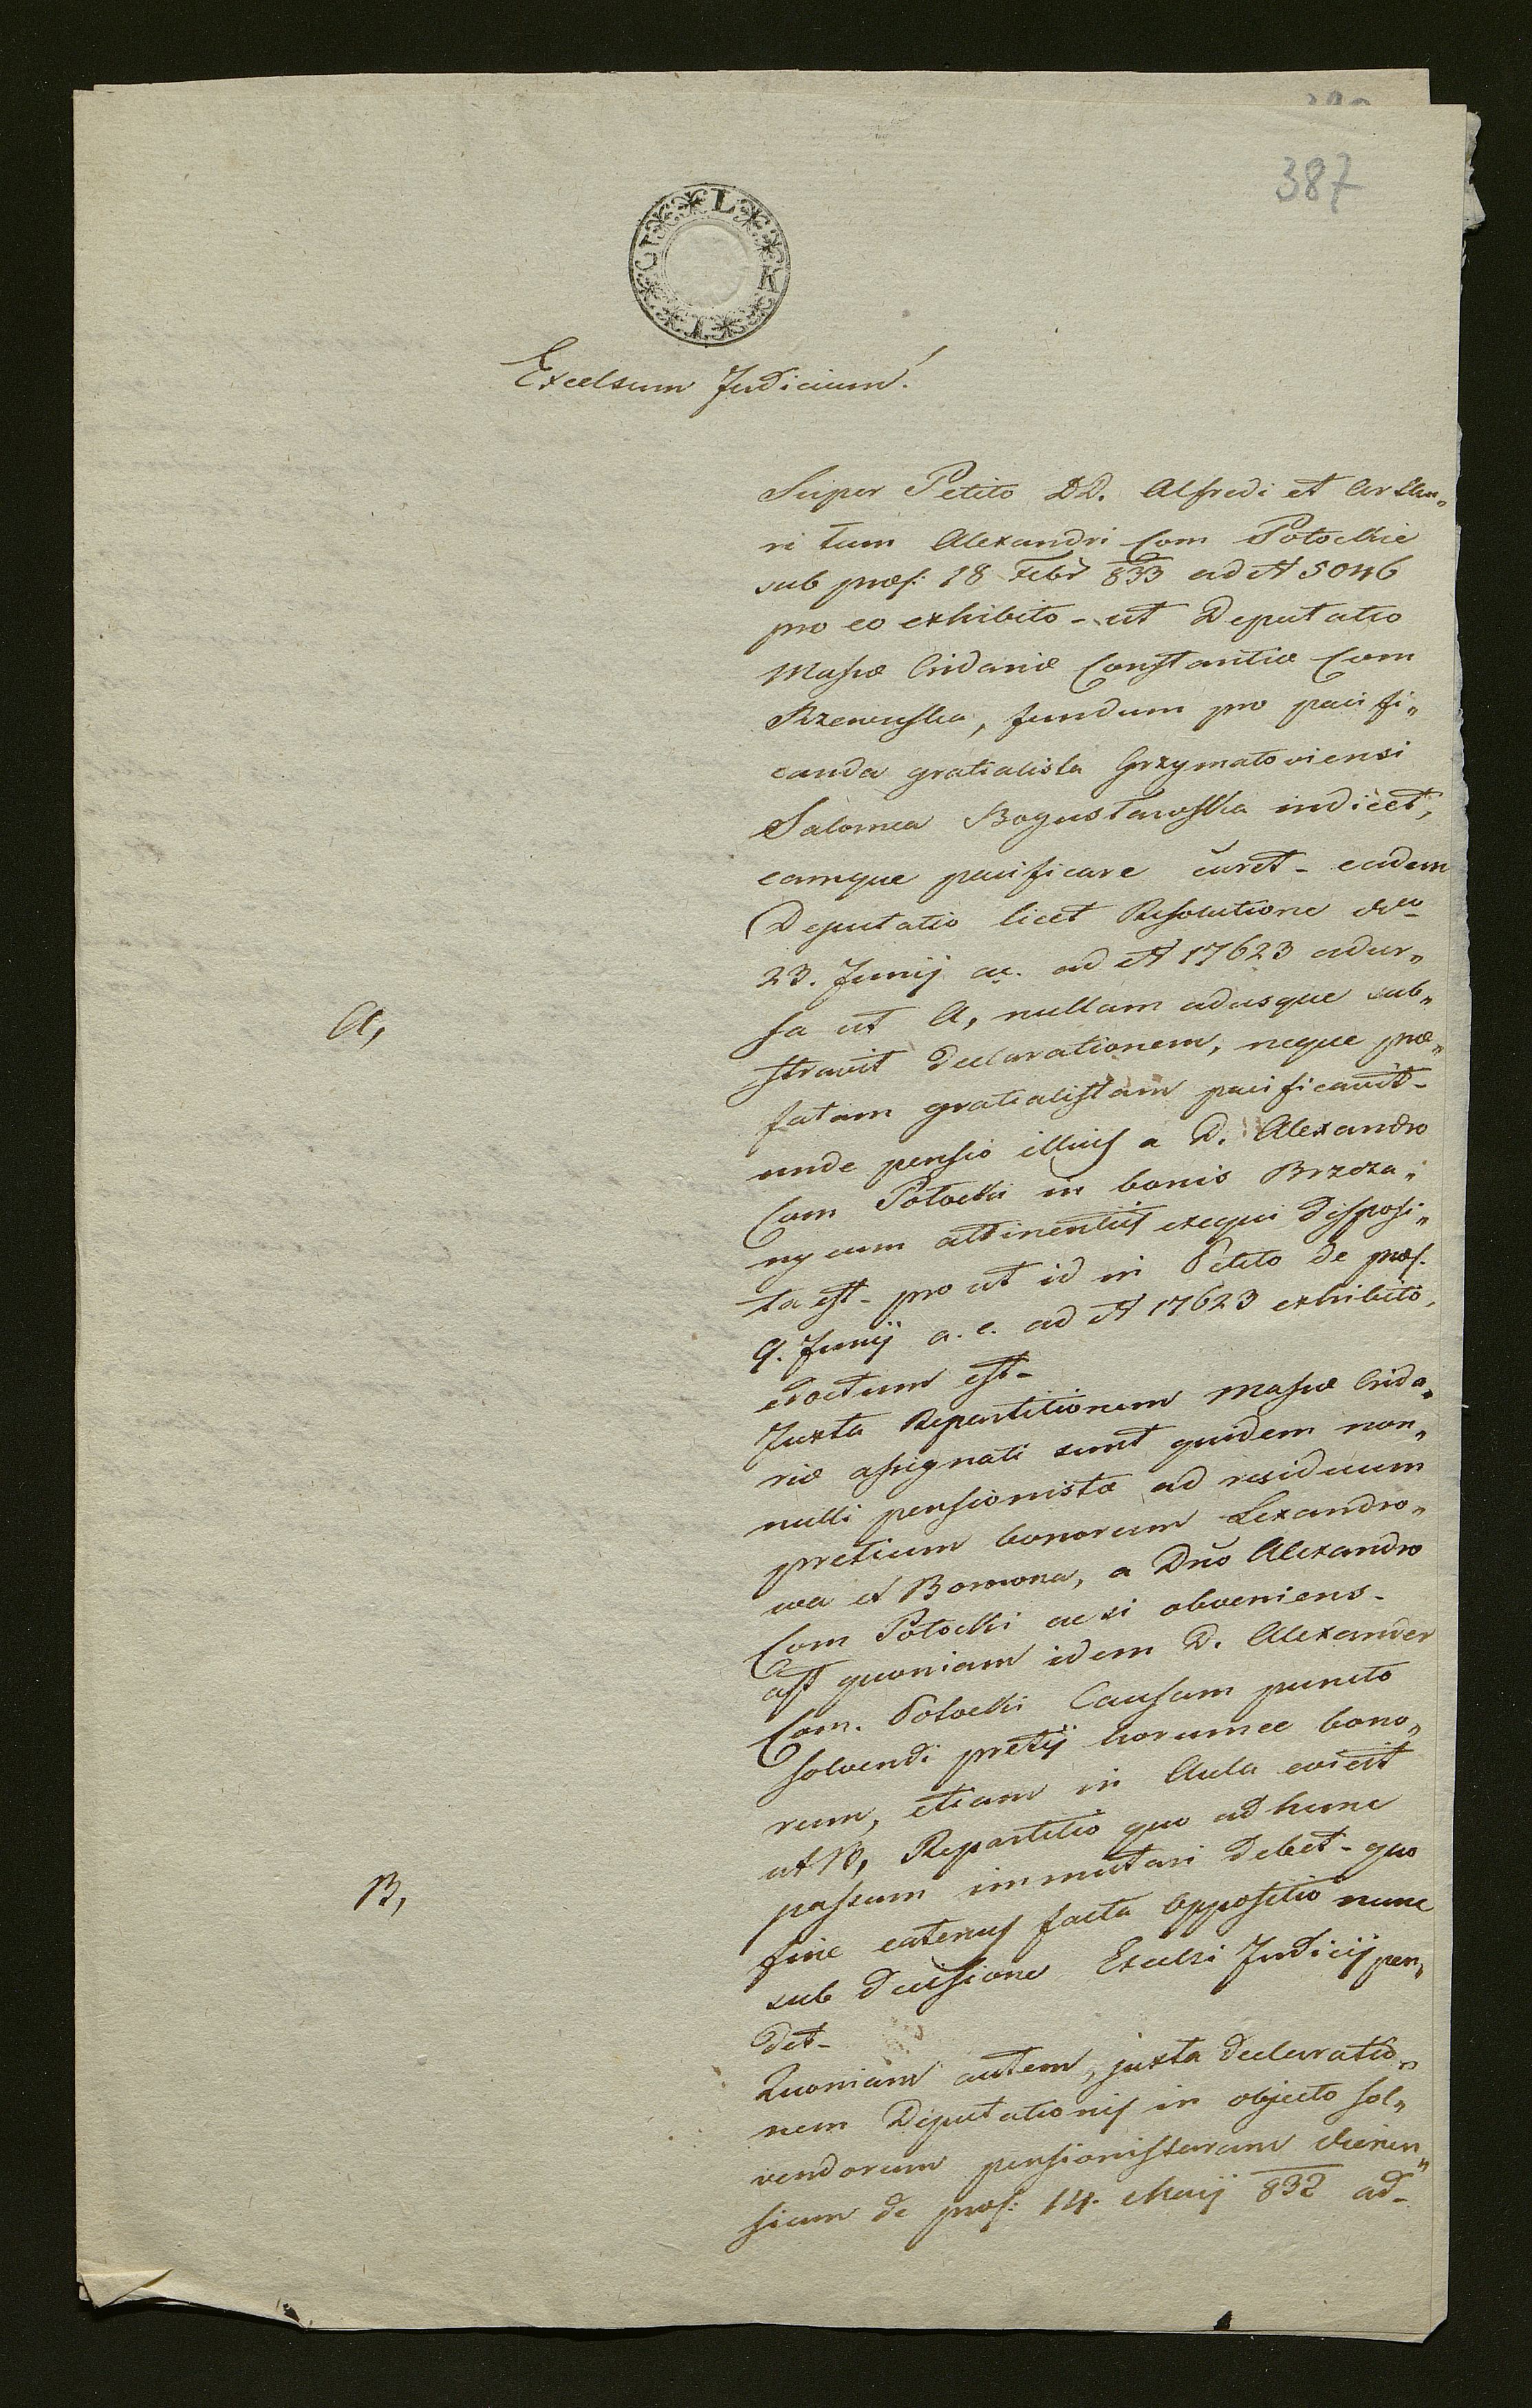 387
L K I
Excelsum Judicium!
Super Petito DD. Alfredi et Arthu„
ri tum Alexandri Com Potockie
sub præs: 18 Febr 833 ad N 5046
pro eo exhibito - ut Deputatio
Massæ Cridariæ Constantiæ Com
Rzewuska, fundum pro pacifi„
canda gratialista Grzymatoviensi
Salomea Bogustawska indicet,
eamque pacificare curet - eadem
Deputatio licet Resolutione ddto
23. Junij a.c. ad N 17623 adur„
A,
sa ut A, nullam adusque sub„
stravit declarationem, neque præ„
fatam gratialistam pacificavit -
unde pensio illius a D. Alexandro
Com Potocki in bonis Brzeza„
ny cum attinentiis exequi disposi„
ta est - pro ut id in Petito de præs.
9. Junij a.c. ad N 17623 exhibito,
edoctum est -
Juxta Repartitionem Massæ Crida„
riæ assignati sunt quidem non„
nulli pensionistæ ad residuum
pretium bonorum Lexandro„
wa et Bomona, a Dno Alexandro
Com Potocki acsi obveniens -
ast quoniam idem D. Alexander
Com. Potocki Causam puncto
solvendi pretij horumce bono„
rum, etiam in Aula evicit
ut B, Repartitio quo ad hunc
B,
passum immutari debet - quo
fine eatenus facta oppositio nunc
sub decisione Excelsi Judicij pen„
det -
Quoniam autem, juxta declaratio„
nem Deputationis in objecto sol„
vendorum pensionistarum
de præs: 14. Maij 832 ad -